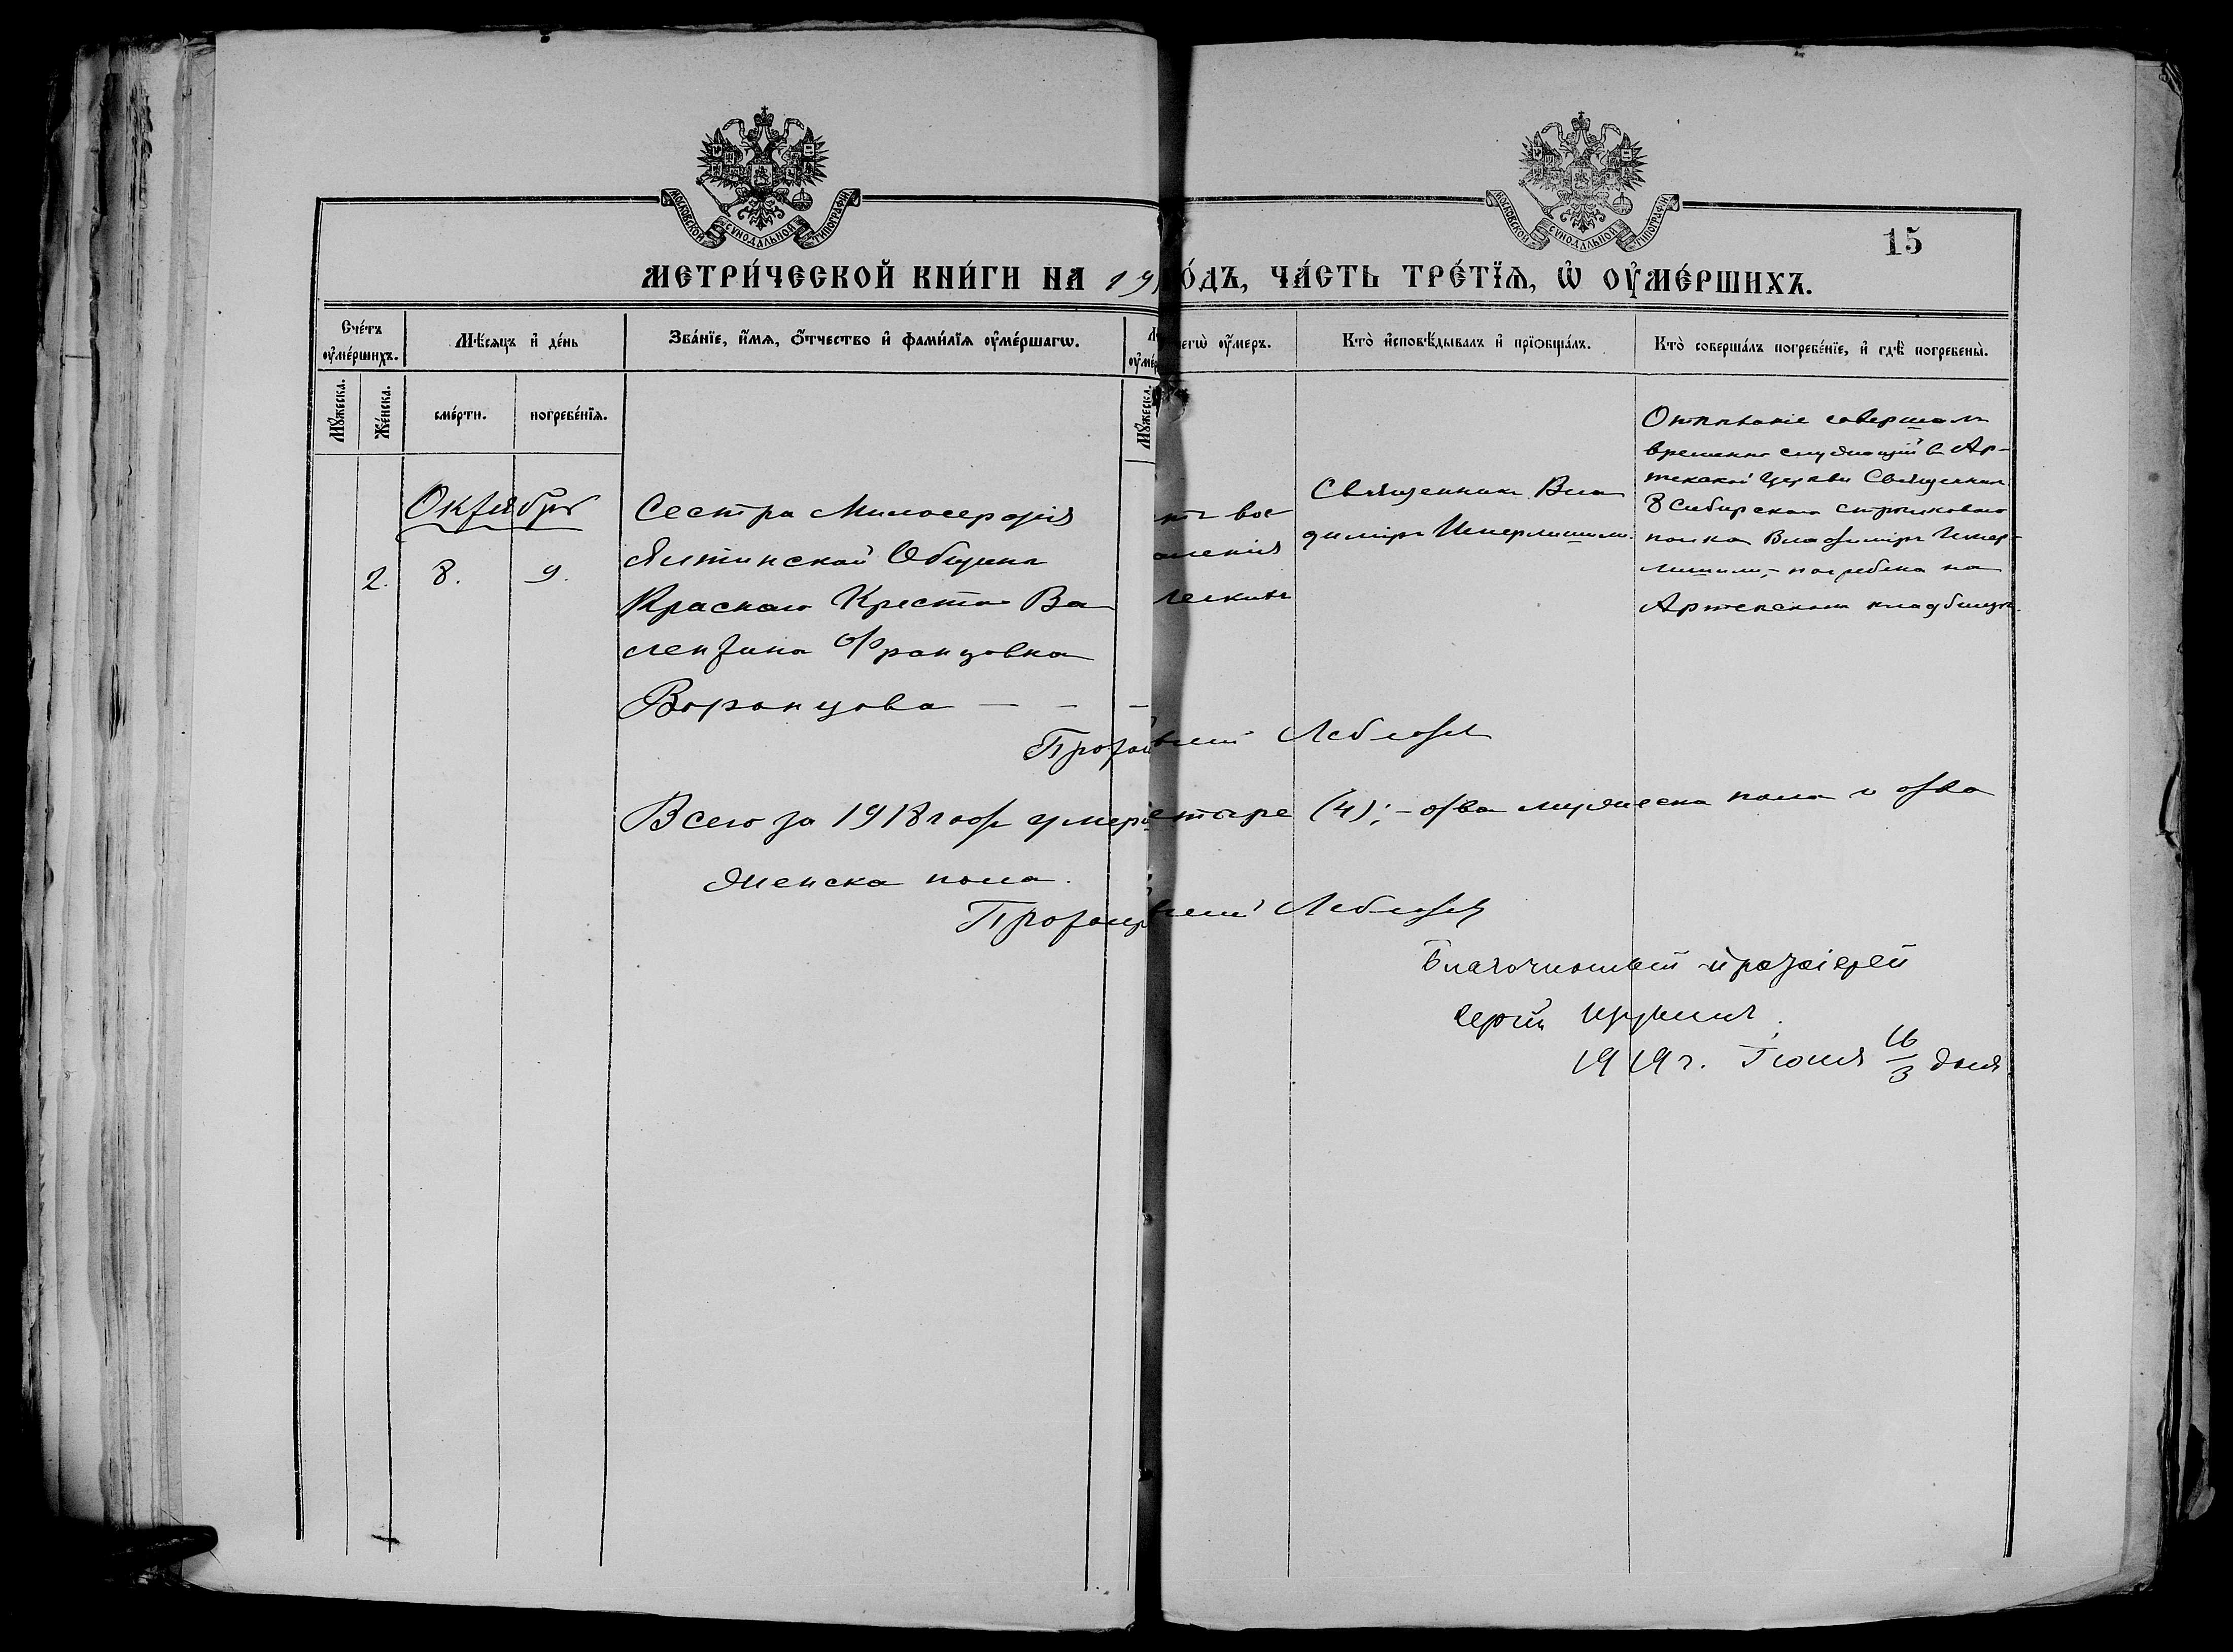 МОСКОВСКОЙ СУНОДАЛЬНОЙ ТИПОГРАФІИ
МОСКОВСКОЙ СУНОДАЛЬНОЙ ТИПОГРАФІИ
15
МЕТРИ́ЧЕСКОЙ КНИ́ГИ НА 19 О́ДЪ, ЧА́СТЬ ТРЕ́ТЇѦ, Ѡ҆ ОУ҆МЕ́РШИХЪ.
Сче́тъ оу҆ме́ршихъ.
Мѣ́сѧцъ и҆ де́нь
Зва́нїе, и҆́мѧ, ѻ҆́тчество и҆ фами́лїѧ оу҆ме́ршагѡ.
егѡ̀ оу҆́меръ.
Кто̀ и҆сповѣ́дывалъ и҆ прїѡбща́лъ.
Кто̀ соверша́лъ погребе́нїе, и҆ гдѣ̀ погребены̀.
Мꙋ́жеска.
Же́нска.
сме́рти.
погребе́нїѧ.
Мꙋ́жеска.
Октябрь
2.
8.
9.
Сестра Милосердія
Ялтинской Общины
Краснаго Креста Ва
лентина Францовна
Воронцова — — —
тъ вос
аленія
легкихъ
Священникъ Вла
диміръ
Отпѣваніе совершалъ
временно служащій въ Ар-
текской Церкви Священникъ
8 Сибирскаго стрѣлковаго
полка Владиміръ
погребена на
Артекскомъ кладбищѣ.
Протоі рей
Всего за 1918 годъ умер етыре (4); – два мужеска пола и два
женска пола.
Протоіер рей
Благочинный протоіерей
Сергій
1919 г. Іюня 16/3 дня.